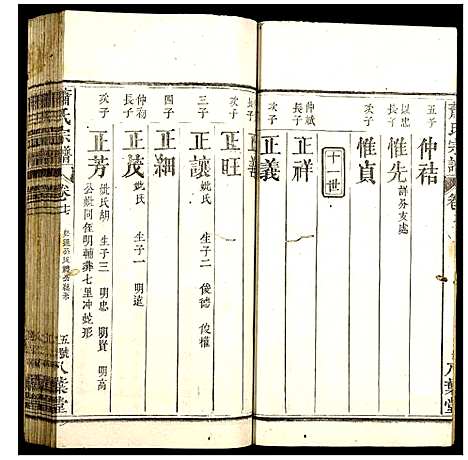 蕭氏宗譜
五子 仲祜
以忠長子 惟先 詳分支處
次子 惟貞
十一世
仲祇 正祥
次子 正義
長子 正善
次子 正旺
三子 正讓 妣氏 生子二 俊德 俊權
四子 正綱
仲初長子 正茂 妣氏 生子一 明遠
次子 正芳 妣氏胡 生子三 明忠 明賢 明高
公妣同侄明輔葬七里冲蛇形
蕭氏宗譜 卷七
五號 八葉堂
八葉堂